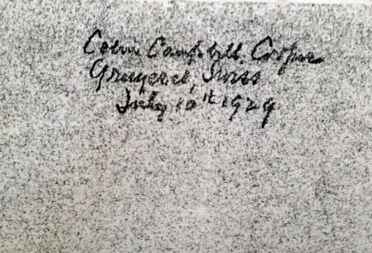 Colin Campbell Cooper
Gruyeres, Swiss
July 10th 1929